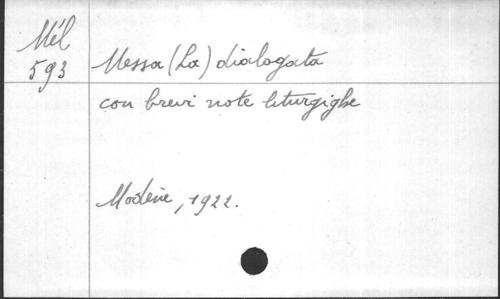 Mél
593
Messa (La) dialogata
con brevi note liturgighe
Modène, 1922.